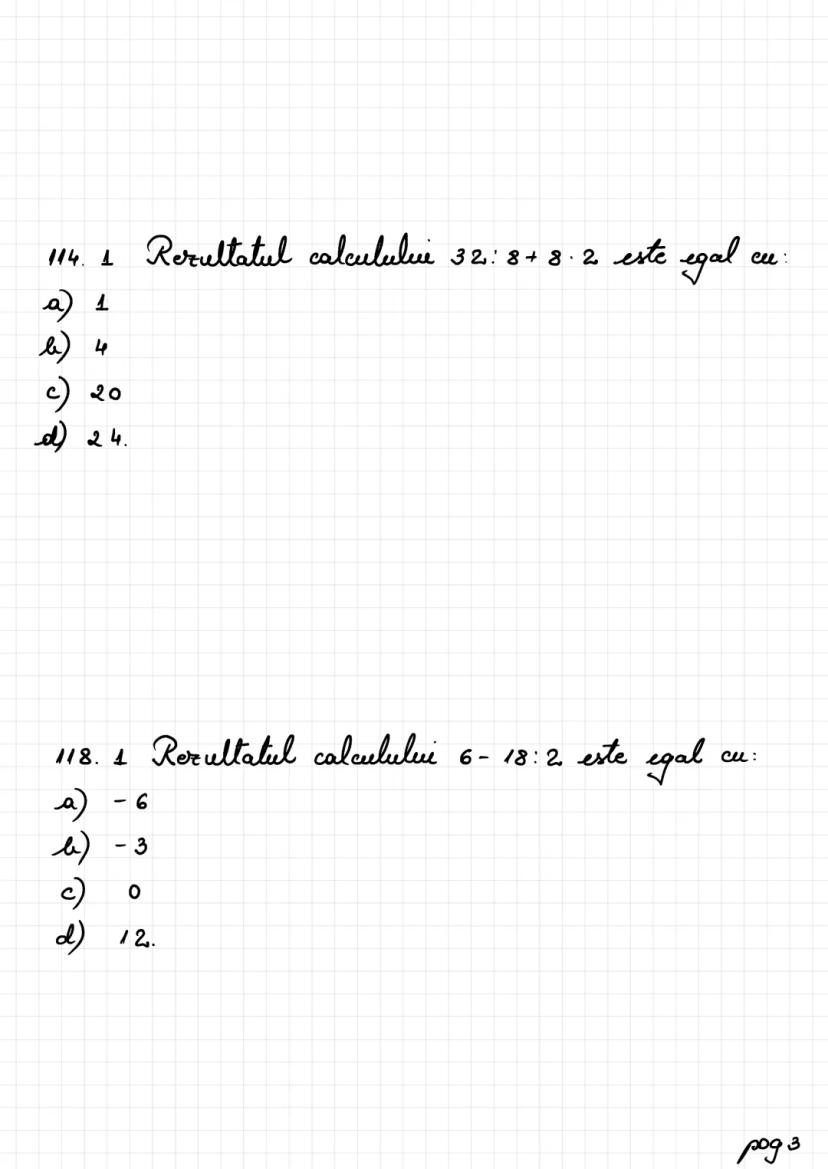 114. 1 Rezultatul calculului 32:8+8·2 este egal cu:
a) 1
b) 4
c) 20
d) 24.
118. 1 Rezultatul calculului 6-18:2 este egal cu:
a) -6
b) -3
c) 0
d) 12.
pag 3